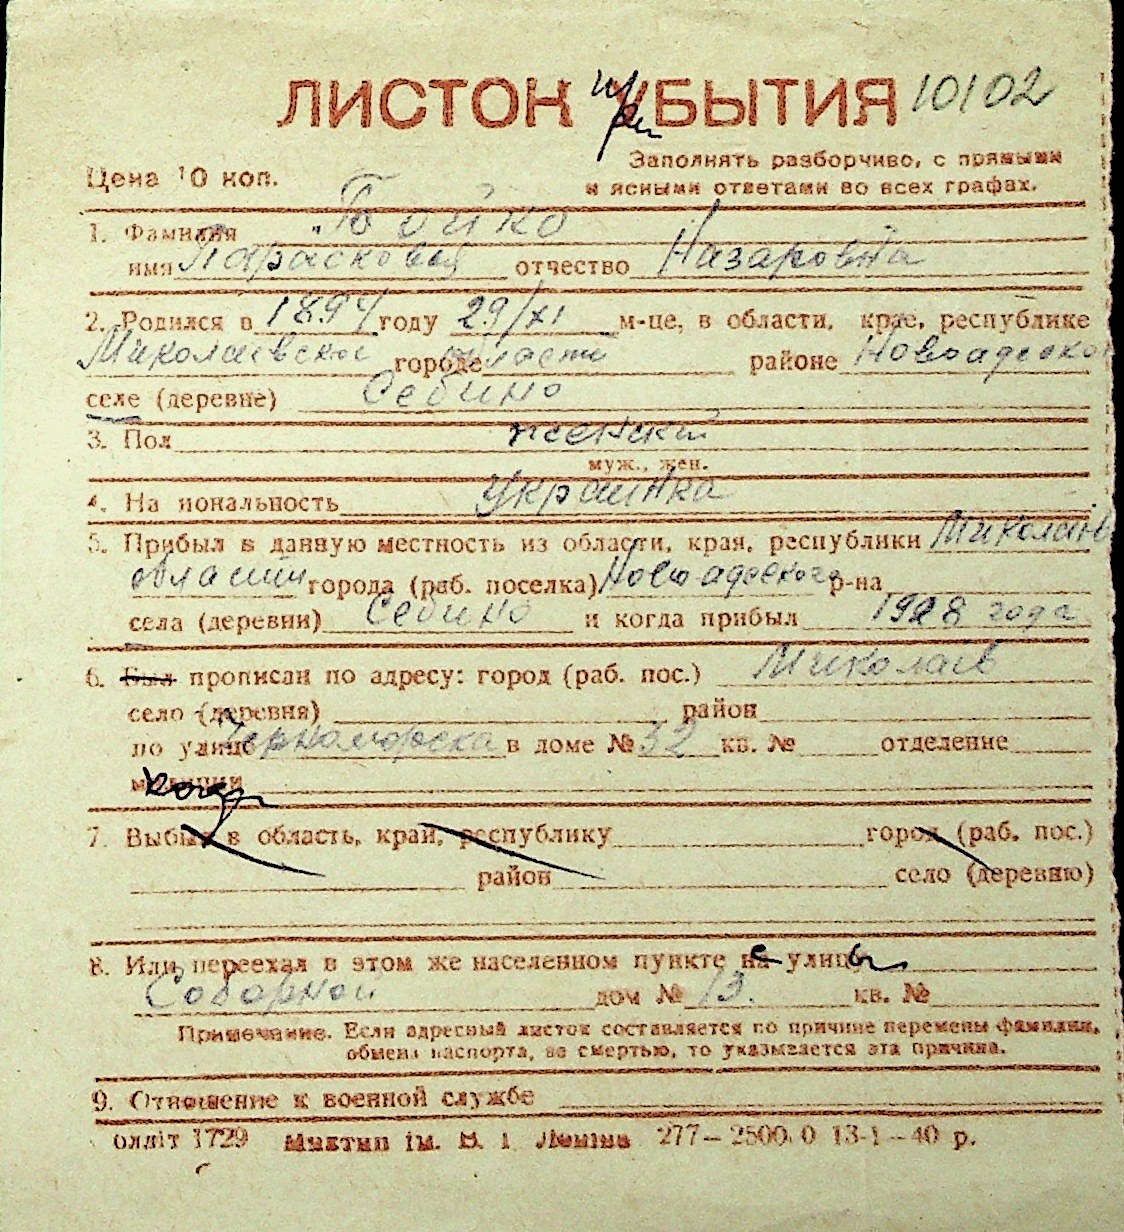 ЛИСТОК ПРИБЫТИЯ 10102
Цена 10 коп.
Заполнять разборчиво, с прямыми
и ясными ответами во всех графах.
1. Фамилия Бойко
имя Парасковья отчество Назаровна
2. Родился в 1894 году 29/XI м-це, в области, крае, республике
Миколаевской городе области районе Новоадеско
селе (деревне) Себино
3. Пол женский
муж., жен.
4. На иональность Украинка
5. Прибыл в данную местность из области, края, республики Миколаев
области города (раб. поселка) Новоадеского р-на
села (деревни) Себино и когда прибыл 1928 года
6. Был прописан по адресу: город (раб. пос.) Миколаев
село (деревня) район
по улице Черноморска в доме № 32 кв. № отделение
милиции
7. Выбыл в область, край, республику город (раб. пос.)
район село (деревню)
8. Или переехал в этом же населенном пункте с улицы
Соборной дом № 13. кв. №
Примечание. Если адресный листок составляется по причине перемены фамилии,
обмена паспорта, со смертью, то указывается эта причина.
9. Отношение к военной службе
олліт 1729 Миктип ім. В. І Леніна 277—2500.0 13-1—40 р.